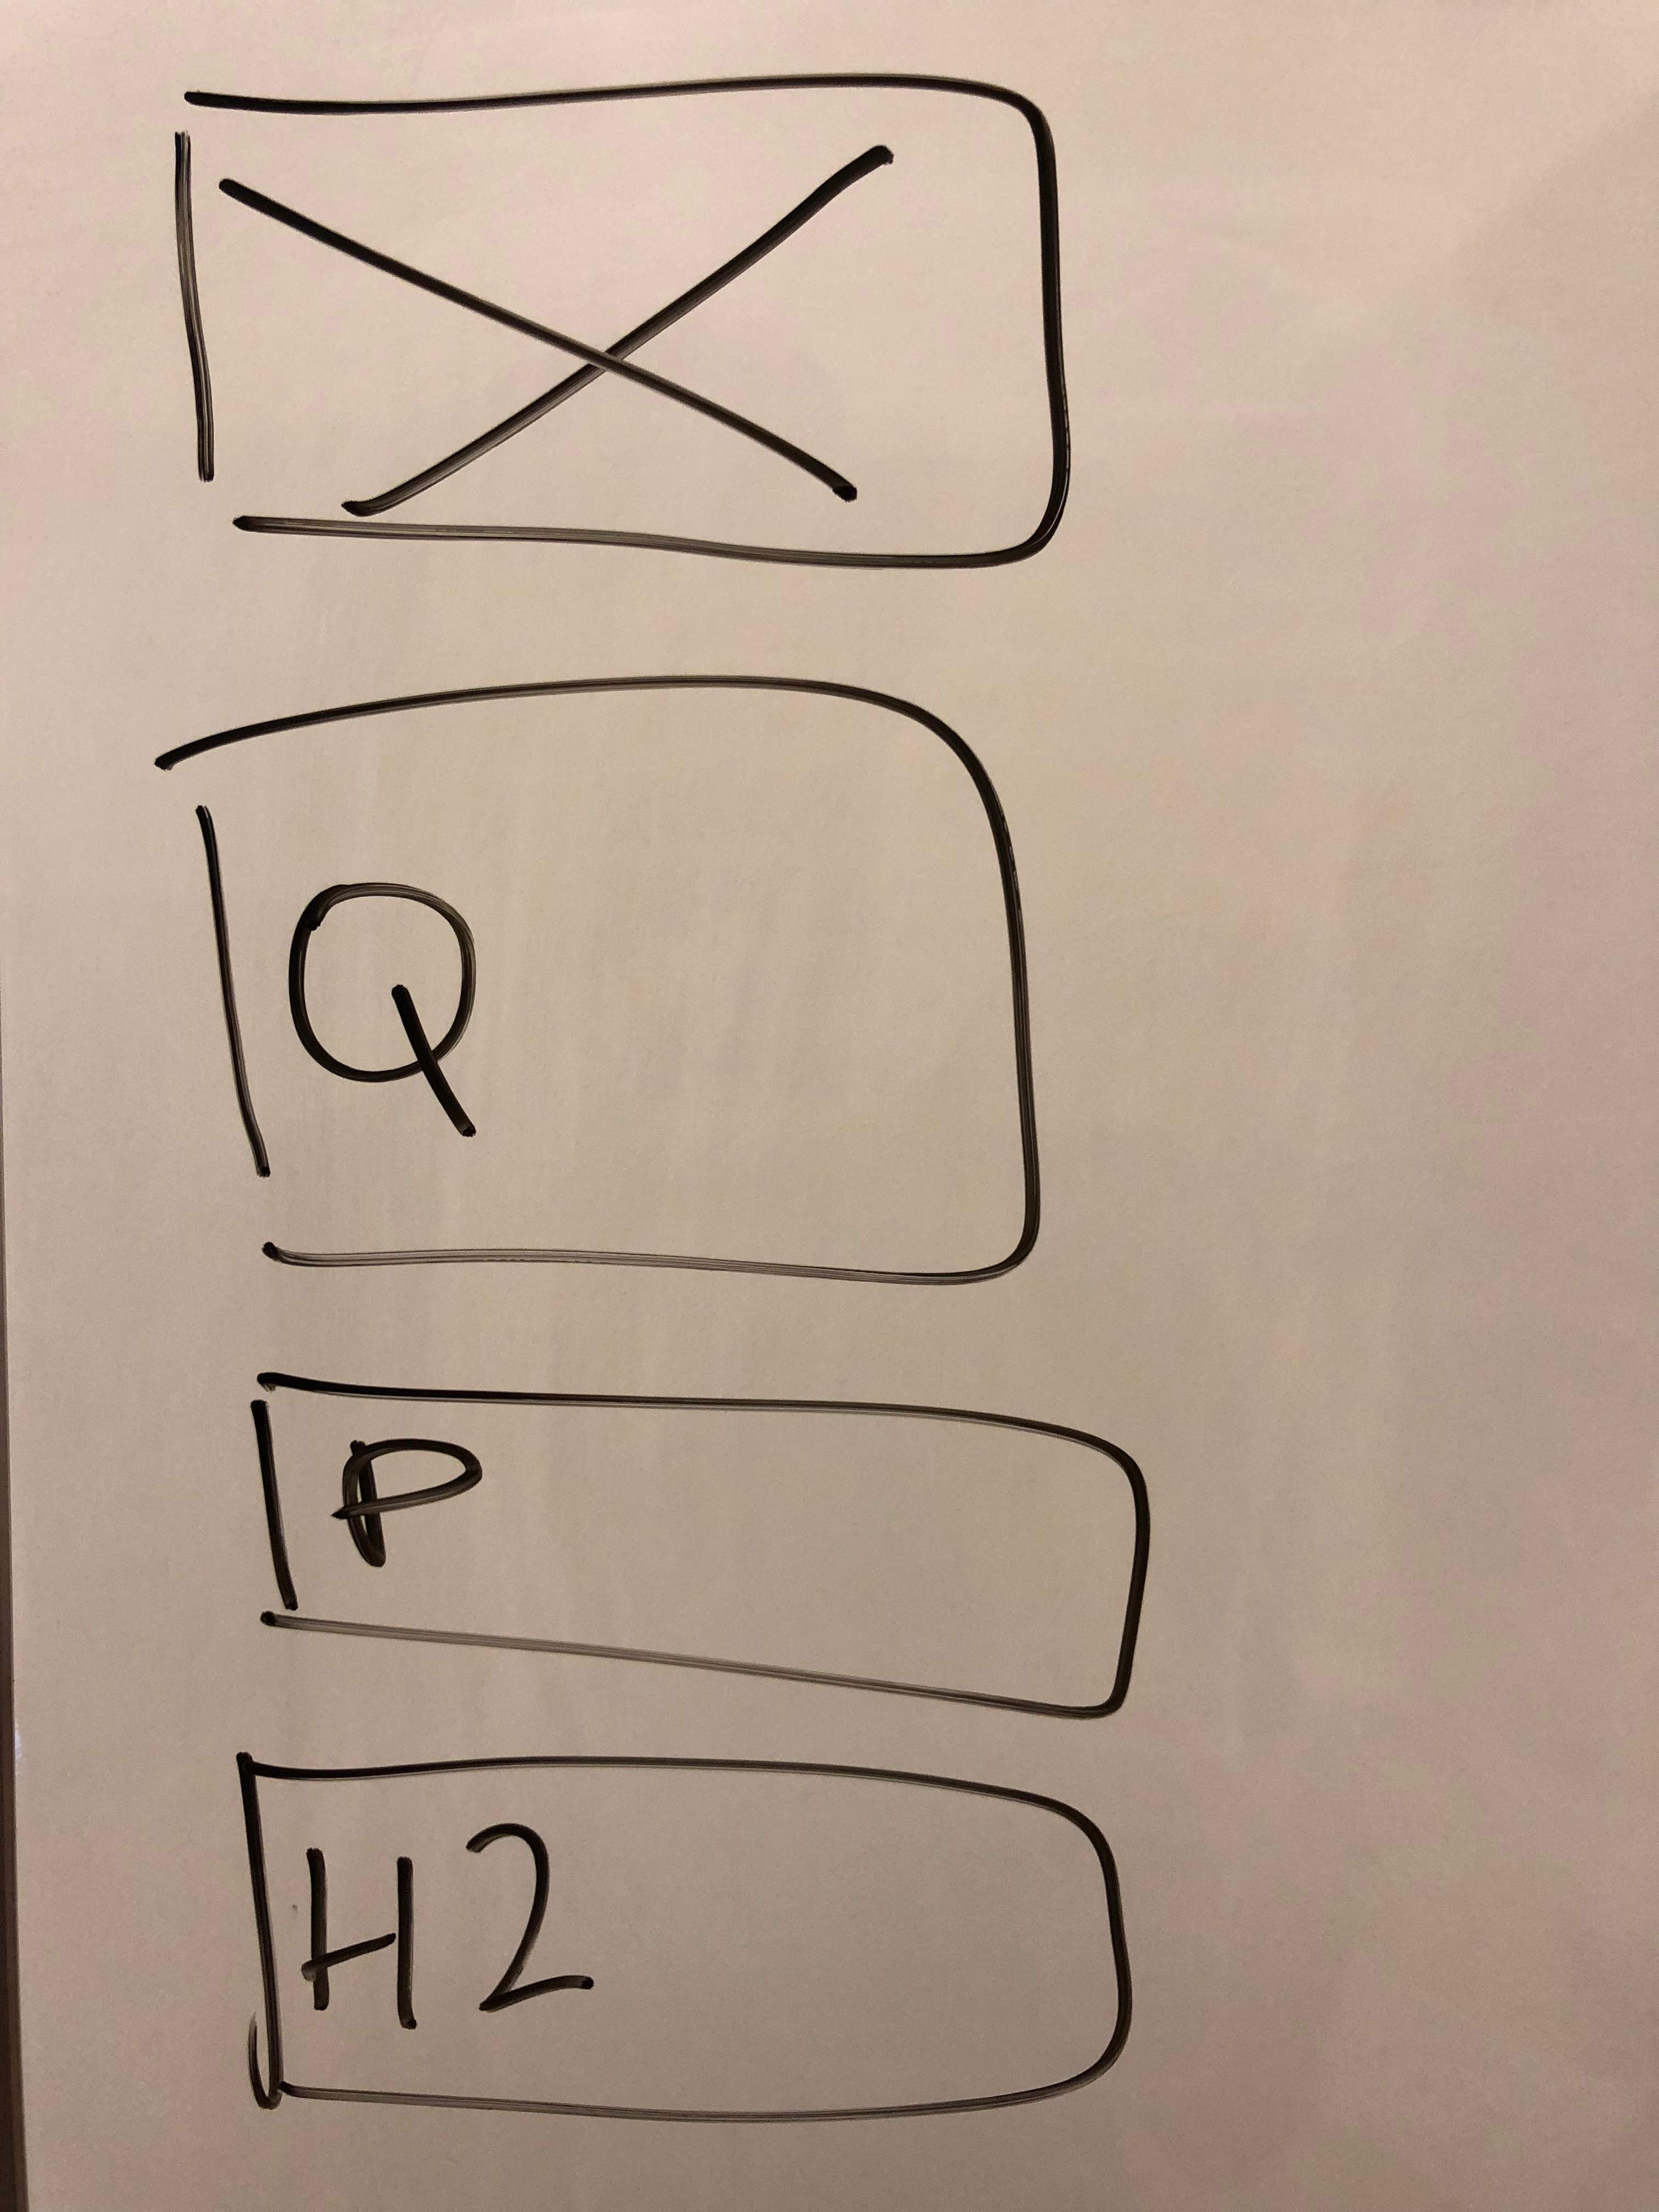 Q
P
H2